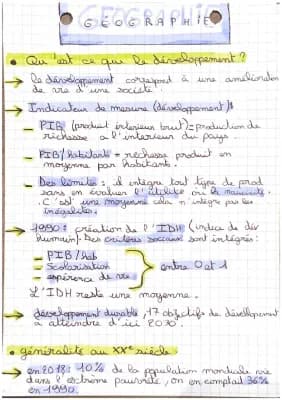 GEOGRAPHIE
GEOGRAPHIE
• Qu'est ce que le développement ?
→ le développement correspond à une amélioration
de vie d'une société.
→ Indicateur de mesure (développement)
– PIB (produit interieur brut) = production de
richesse a l'interieur du pays.
– PIB/habitants = richesse produit en
moyenne par habitants.
– Des limites : il intègre tout type de prod
sans en évaluer l'utilité ou la
. C'est une moyenne cela n'intègre pas les
inégalités.
→ 1990 : création de l'IDH (indice de dév
humain). Des critères sociaux sont intégrés :
– PIB/hab
– Scolarisation
– espérance de vie
entre 0 et 1
L'IDH reste une moyenne.
→ développement durable, 17 objectifs de développement
à atteindre d'ici 2030.
• généralité au XXe siècle
→ en 2018 : 10% de la population mondiale vie
dans l'extrême pauvreté, on en comptait 36%
en 1990.